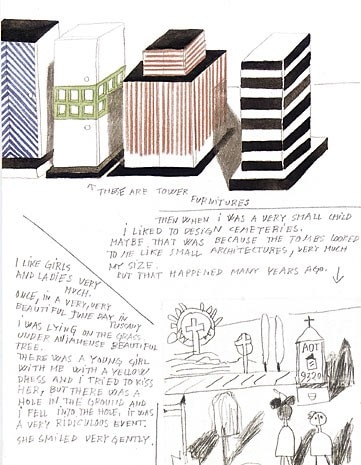 ↑ THESE ARE TOWER
FURNITURES
THEN WHEN I WAS A VERY SMALL CHILD
I LIKED TO DESIGN CEMETERIES.
MAYBE THAT WAS BECAUSE THE TOMBS LOOKED
TO ME LIKE SMALL ARCHITECTURES, VERY MUCH
MY SIZE.
BUT THAT HAPPENED MANY YEARS AGO. ↓
I LIKE GIRLS
AND LADIES VERY
MUCH.
ONCE, IN A VERY, VERY
BEAUTIFUL JUNE DAY, IN
TUSCONY
I WAS LYING ON THE GRASS
UNDER AN IMMENSE BEAUTIFUL
TREE.
THERE WAS A YOUNG GIRL
WITH ME WITH A YELLOW
DRESS AND I TRIED TO KISS
HER, BUT THERE WAS A
HOLE IN THE GROUND AND
I FELL INTO THE HOLE. IT WAS
A VERY RIDICULOUS EVENT.
SHE SMILED VERY GENTLY.
AOT
9220